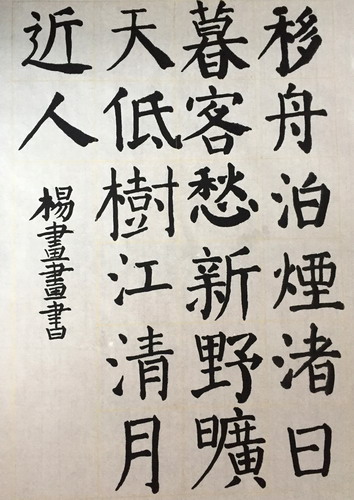 移舟泊煙渚日
暮客愁新野曠
天低樹江清月
近人
楊畫畫書